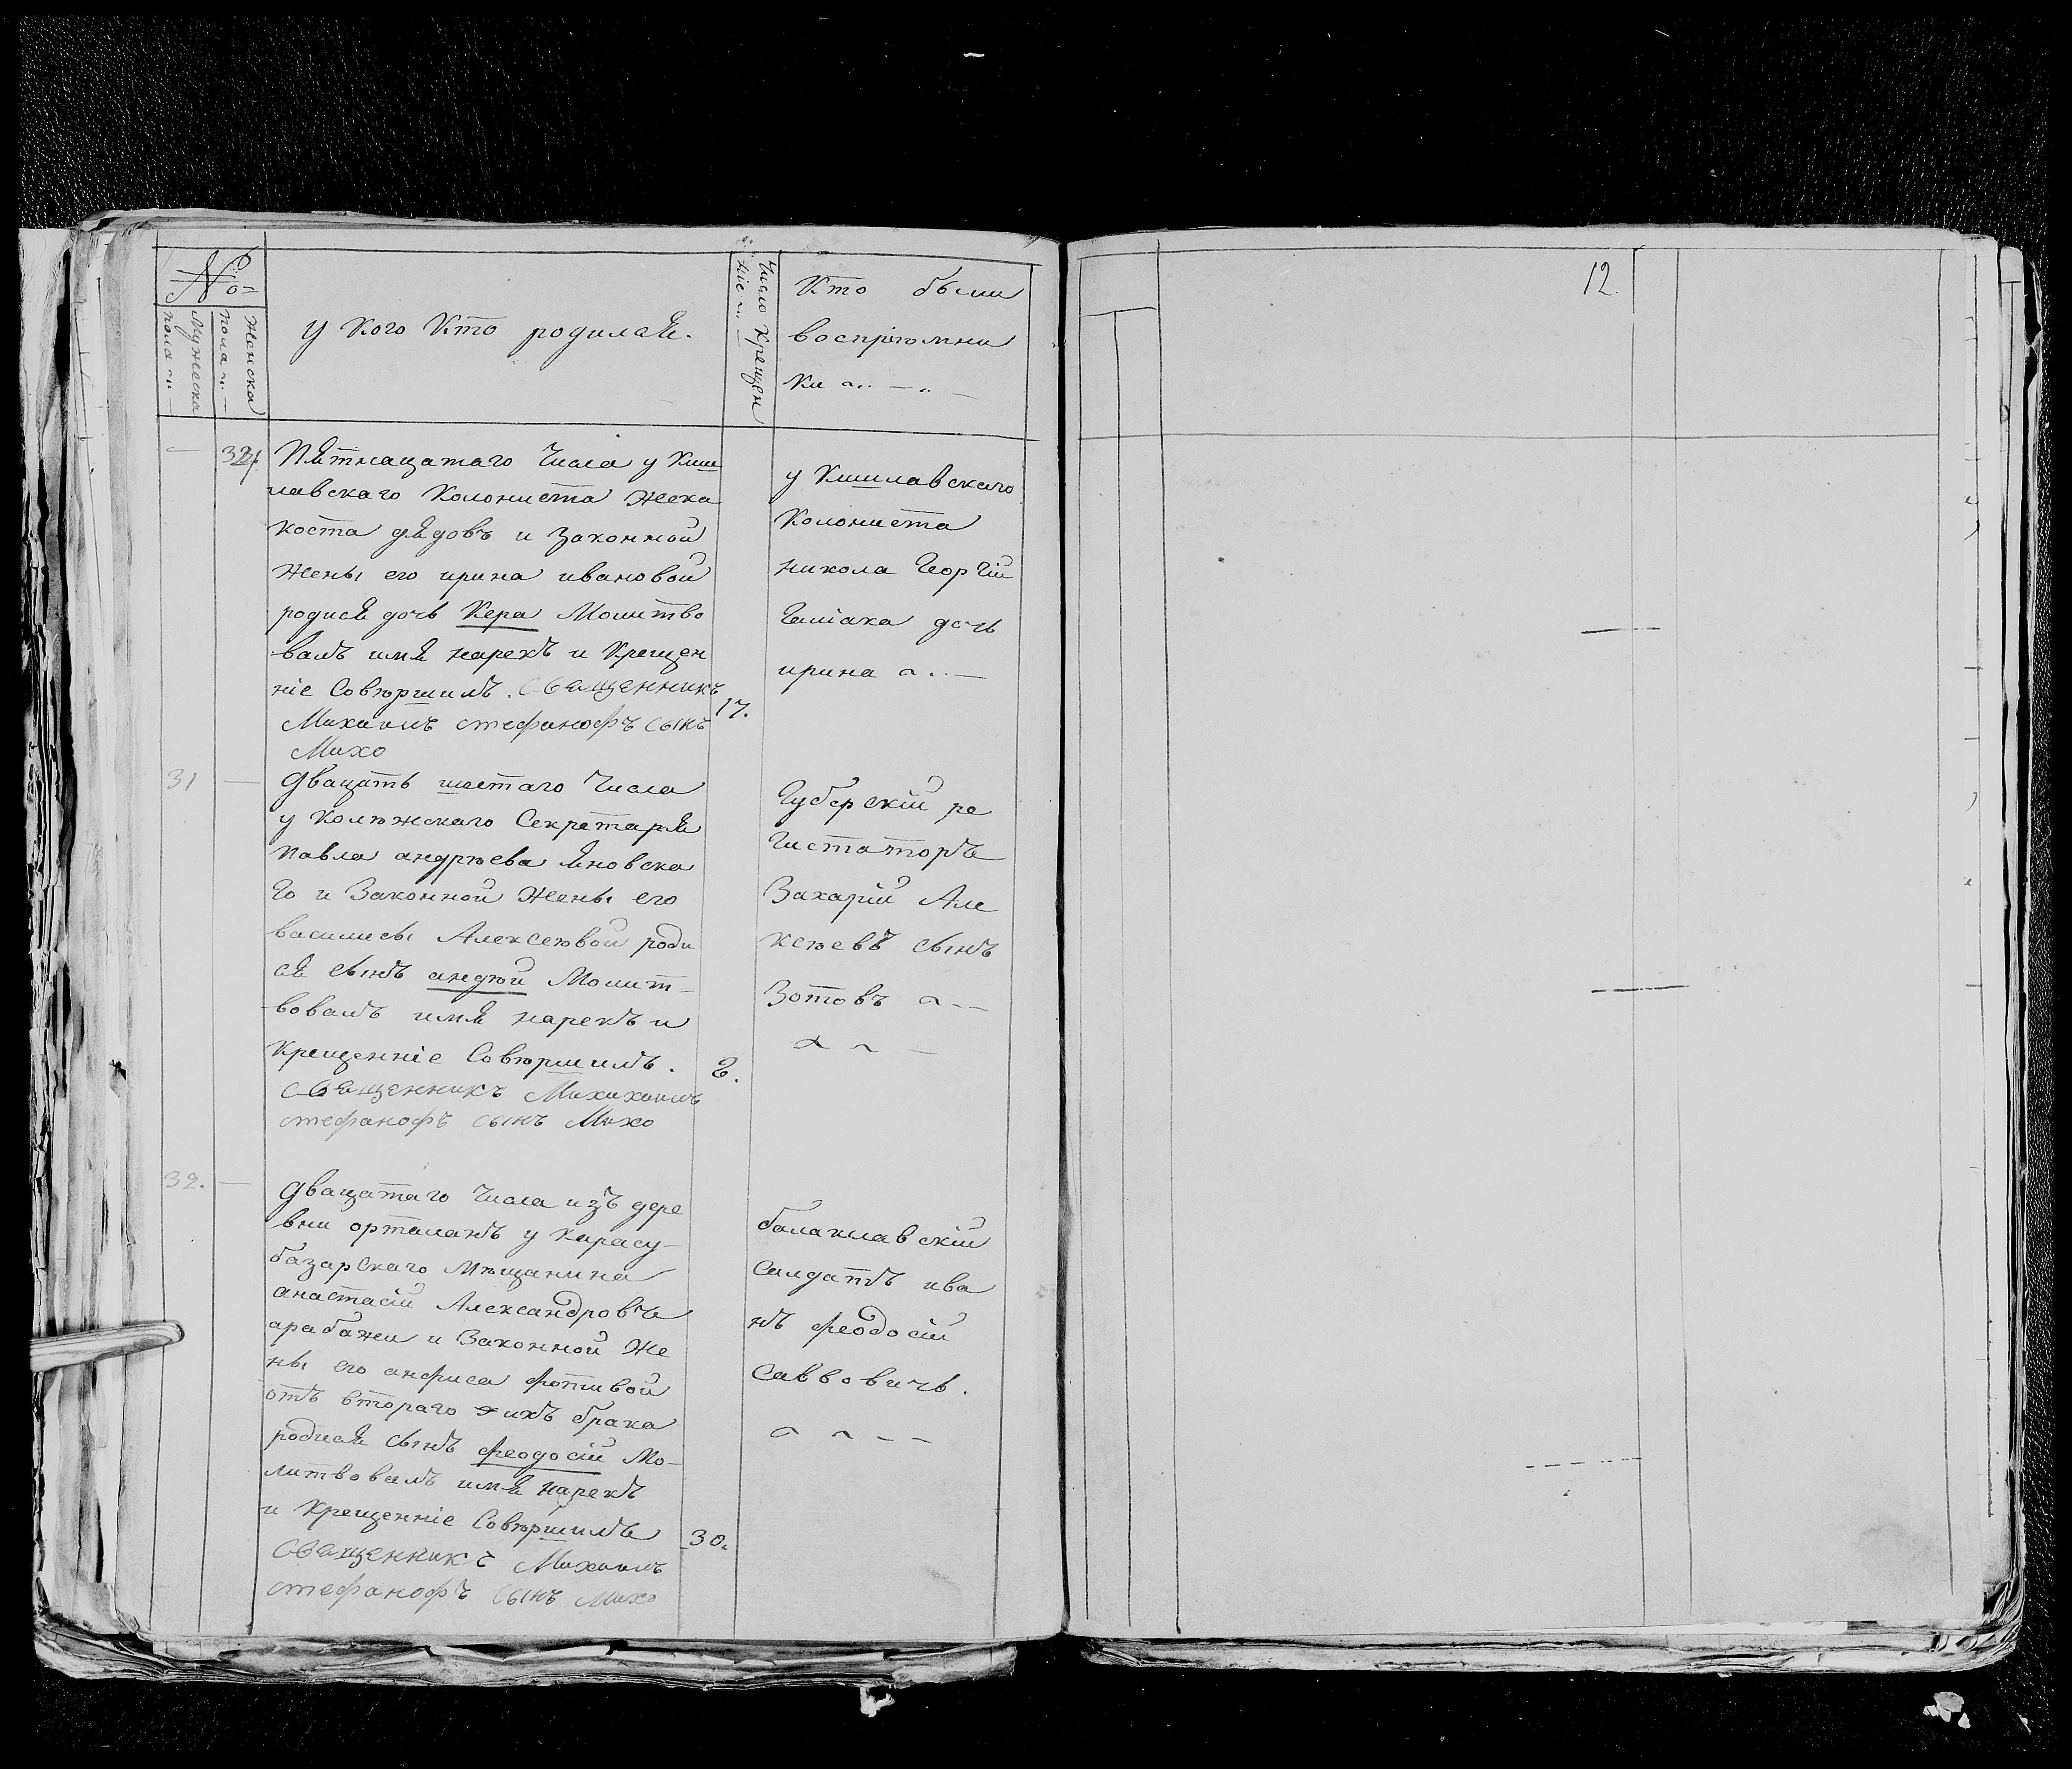 №
Мужеска
пола
Женска
пола
у кого кто родился.
Число Крещен
ніе
Кто были
воспріюмни
ки
12.
Пятнацатаго Числа у Киш
лавскаго Колониста Нека
коста дядовъ и законной
жены его ирина ивановой
родися дочь Кера Молитво
валъ имя нарекъ и Крещен
ніе Совѣршилъ. Священникъ
Михаилъ стефанофъ сынъ
Михо
17.
у Кишлавскаго
Колониста
никола Георгій
дочь
ирина
31
Двацать шестаго Числа
у Колѣжскаго Секретаря
Павла андрѣева яновска
го и Законной Жены его
василисы Алексеѣвой роди
ся сынъ андѣй Молит-
вовалъ имя нарекъ и
Крещенніе Совѣршилъ.
Священникъ Михихаилъ
стефанофъ сынъ Михо
2.
Губерскій ре
гистаторъ
Захарій Але
ксѣевъ сынъ
Зотовъ
32.
Двацатаго Числа изъ дере
вни орталанъ у Карасу-
базарскаго Мѣщанина
анастасій Александровъ
арабажи и Законной Же
ны его анфиса фотивой
отъ втораго ихъ брака
родися сынъ феодосій Мо-
литвовалъ имя нарекъ
и Крещенніе Совѣршилъ
Священникъ Михаилъ
стефанофъ сынъ Михо
30.
балаклавскій
Салдатъ ива
нъ феодосій
Саввовичь.